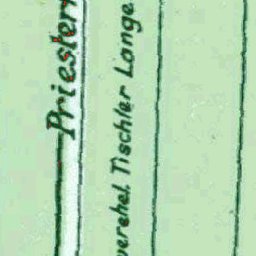 Priestern
verehel. Tischler Lange